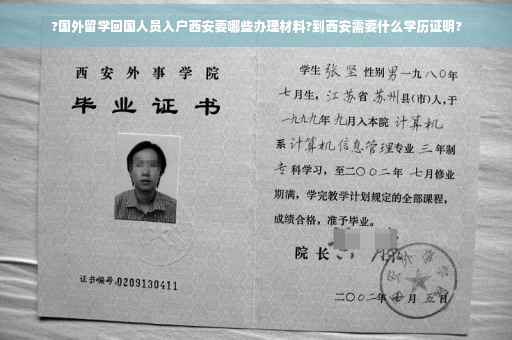 ?国外留学回国人员入户西安要哪些办理材料?到西安需要什么学历证明?
西安外事学院
毕业证书
证书编号:0209130411
学生 张坚 性别男一九八〇年
七月生,江苏省苏州县(市)人,于
一九九九年九月入本院 计算机
系 计算机信息管理专业 三年制
专科学习,至二〇〇二年 七月修业
期满,学完教学计划规定的全部课程,
成绩合格,准予毕业。
院长
二〇〇二年 月五日